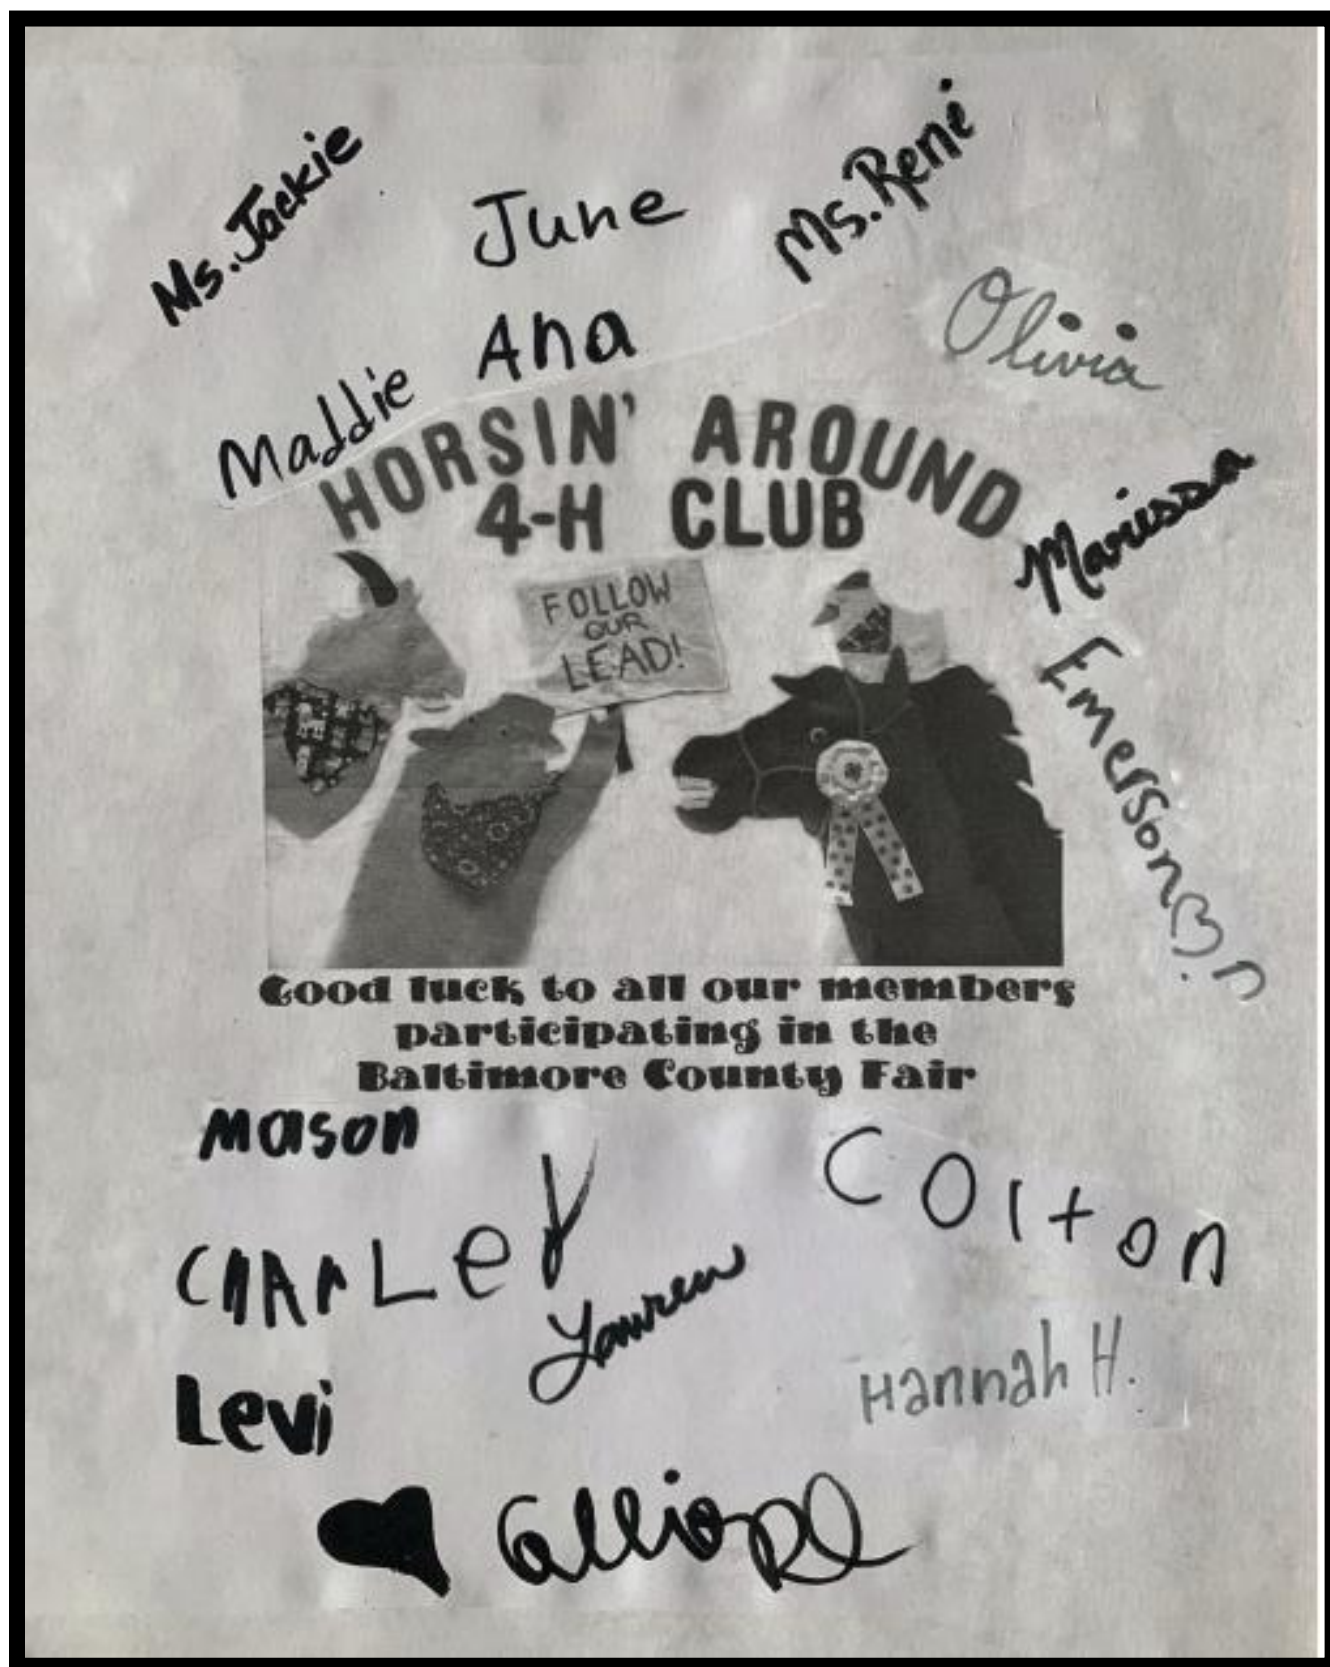 Ms. Jackie
June
Ms. René
Olivia
Ana
Maddie
HORSIN' AROUND
4-H CLUB
Marissa
FOLLOW
OUR
LEAD!
Emerson♡
Good luck to all our members
participating in the
Baltimore County Fair
Mason
Colton
CHArLey
Lauren
Hannah H.
Levi
Calliope